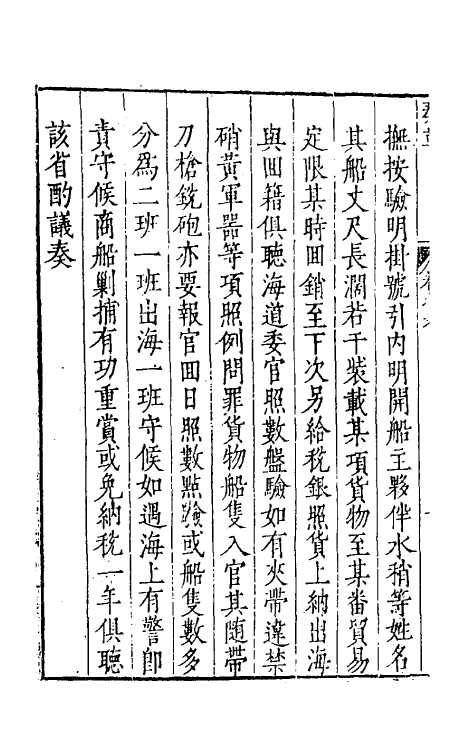 撫按驗明掛號引内明開船主夥伴水稍等姓名
其船丈尺長濶若干裝載某項貨物至某番貿易
定限某時囬銷至下次另給稅銀照貨上納出海
與囬籍俱聽海道委官照數盤驗如有夾帶違禁
硝黄軍器等項照例問罪貨物船隻入官其隨帶
刀槍銃砲亦要報官囬日照數點驗或船隻數多
分爲二班一班出海一班守候如遇海上有警卽
責守候商船勦捕有功重賞或免納稅一年俱聽
該省酌議奏